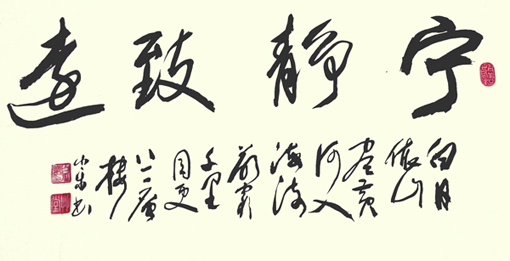 宁静致遠
白日
依山
盡黄
河入
海流
欲窮
千里
目更
上一層
楼